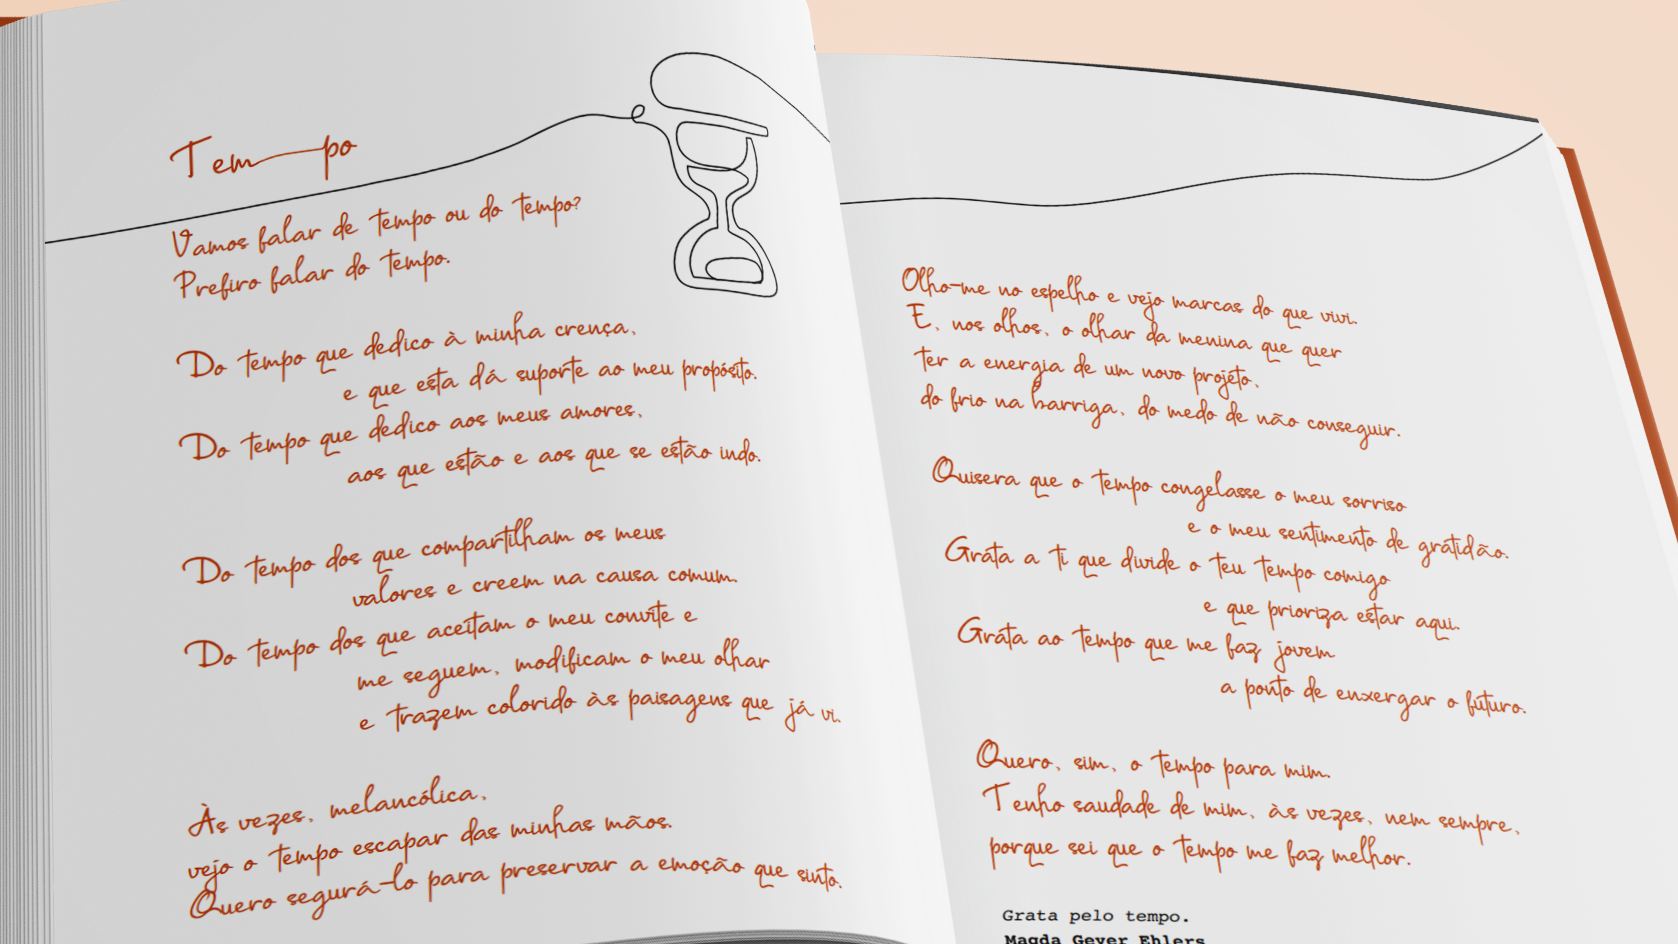 Tempo
Vamos falar de tempo ou do tempo?
Prefiro falar do tempo.
Do tempo que dedico à minha crença,
e que esta dá suporte ao meu propósito.
Do tempo que dedico aos meus amores,
aos que estão e aos que se estão indo.
Do tempo dos que compartilham os meus
valores e creem na causa comum.
Do tempo dos que aceitam o meu convite e
me seguem, modificam o meu olhar
e trazem colorido às paisagens que já vi.
Às vezes, melancólica,
vejo o tempo escapar das minhas mãos.
Quero segurá-lo para preservar a emoção que sinto.
Olho-me no espelho e vejo marcas do que vivi.
E, nos olhos, o olhar da menina que quer
ter a energia de um novo projeto,
do frio na barriga, do medo de não conseguir.
Quisera que o tempo congelasse o meu sorriso
e o meu sentimento de gratidão.
Grata a ti que divide o teu tempo comigo
e que prioriza estar aqui.
Grata ao tempo que me faz jovem
a ponto de enxergar o futuro.
Quero, sim, o tempo para mim.
Tenho saudade de mim, às vezes, nem sempre,
porque sei que o tempo me faz melhor.
Grata pelo tempo.
Magda Geyer Ehlers